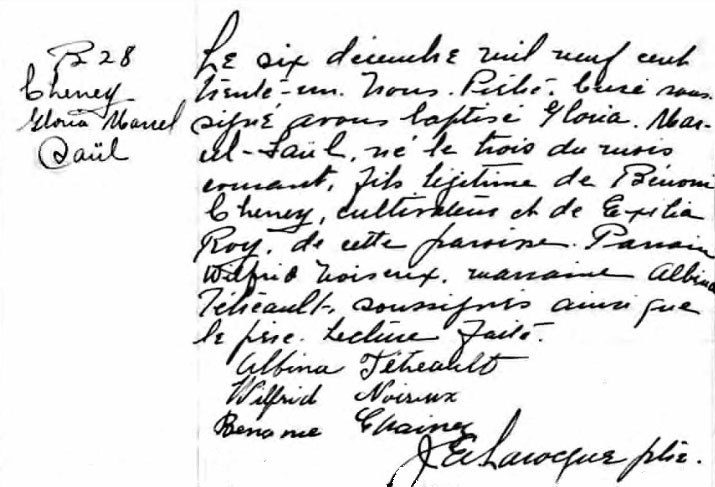 B 28
Cheney
Gloria Marcel
Saül
Le six décembre mil neuf cent
trente-un. Nous. Prêtre. Curé sous-
signé avons baptisé Gloria. Mar-
cel-Saül, né le trois du mois
courant, fils légitime de Bénoni
Cheney, cultivateur et de Exilia
Roy, de cette paroisse. Parrain
Wilfrid Noiseux, marraine Albina
Tétreault, soussignés ainsi que
le père. Lecture faite.
Albina Tétreault
Wilfrid Noiseux
Benonie Chainey
J E Larocque ptre.